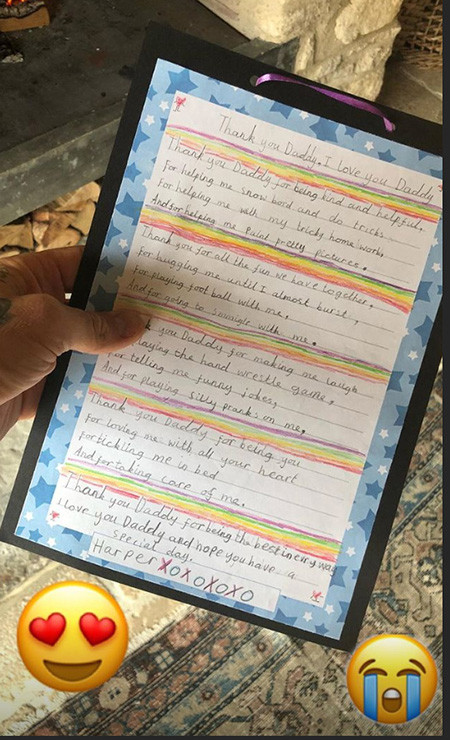 Thank you Daddy, I love you Daddy
Thank you Daddy for being kind and helpful,
For helping me snow bord and do tricks
For helping me with my tricky home work,
And for helping me paint pretty pictures.
Thank you for all the fun we have together,
For hugging me until I almost burst,
For playing foot ball with me,
And for going to with me.
you Daddy for making me laugh
playing the hand wrestle game,
telling me funny jokes,
And for playing silly pranks on me,
Thank you Daddy for being you
For loving me with all your heart
For tickling me in bed
And for taking care of me.
Thank you Daddy for being the best in evry way
I love you Daddy and hope you have a
special day.
Harper XOXOXOXO